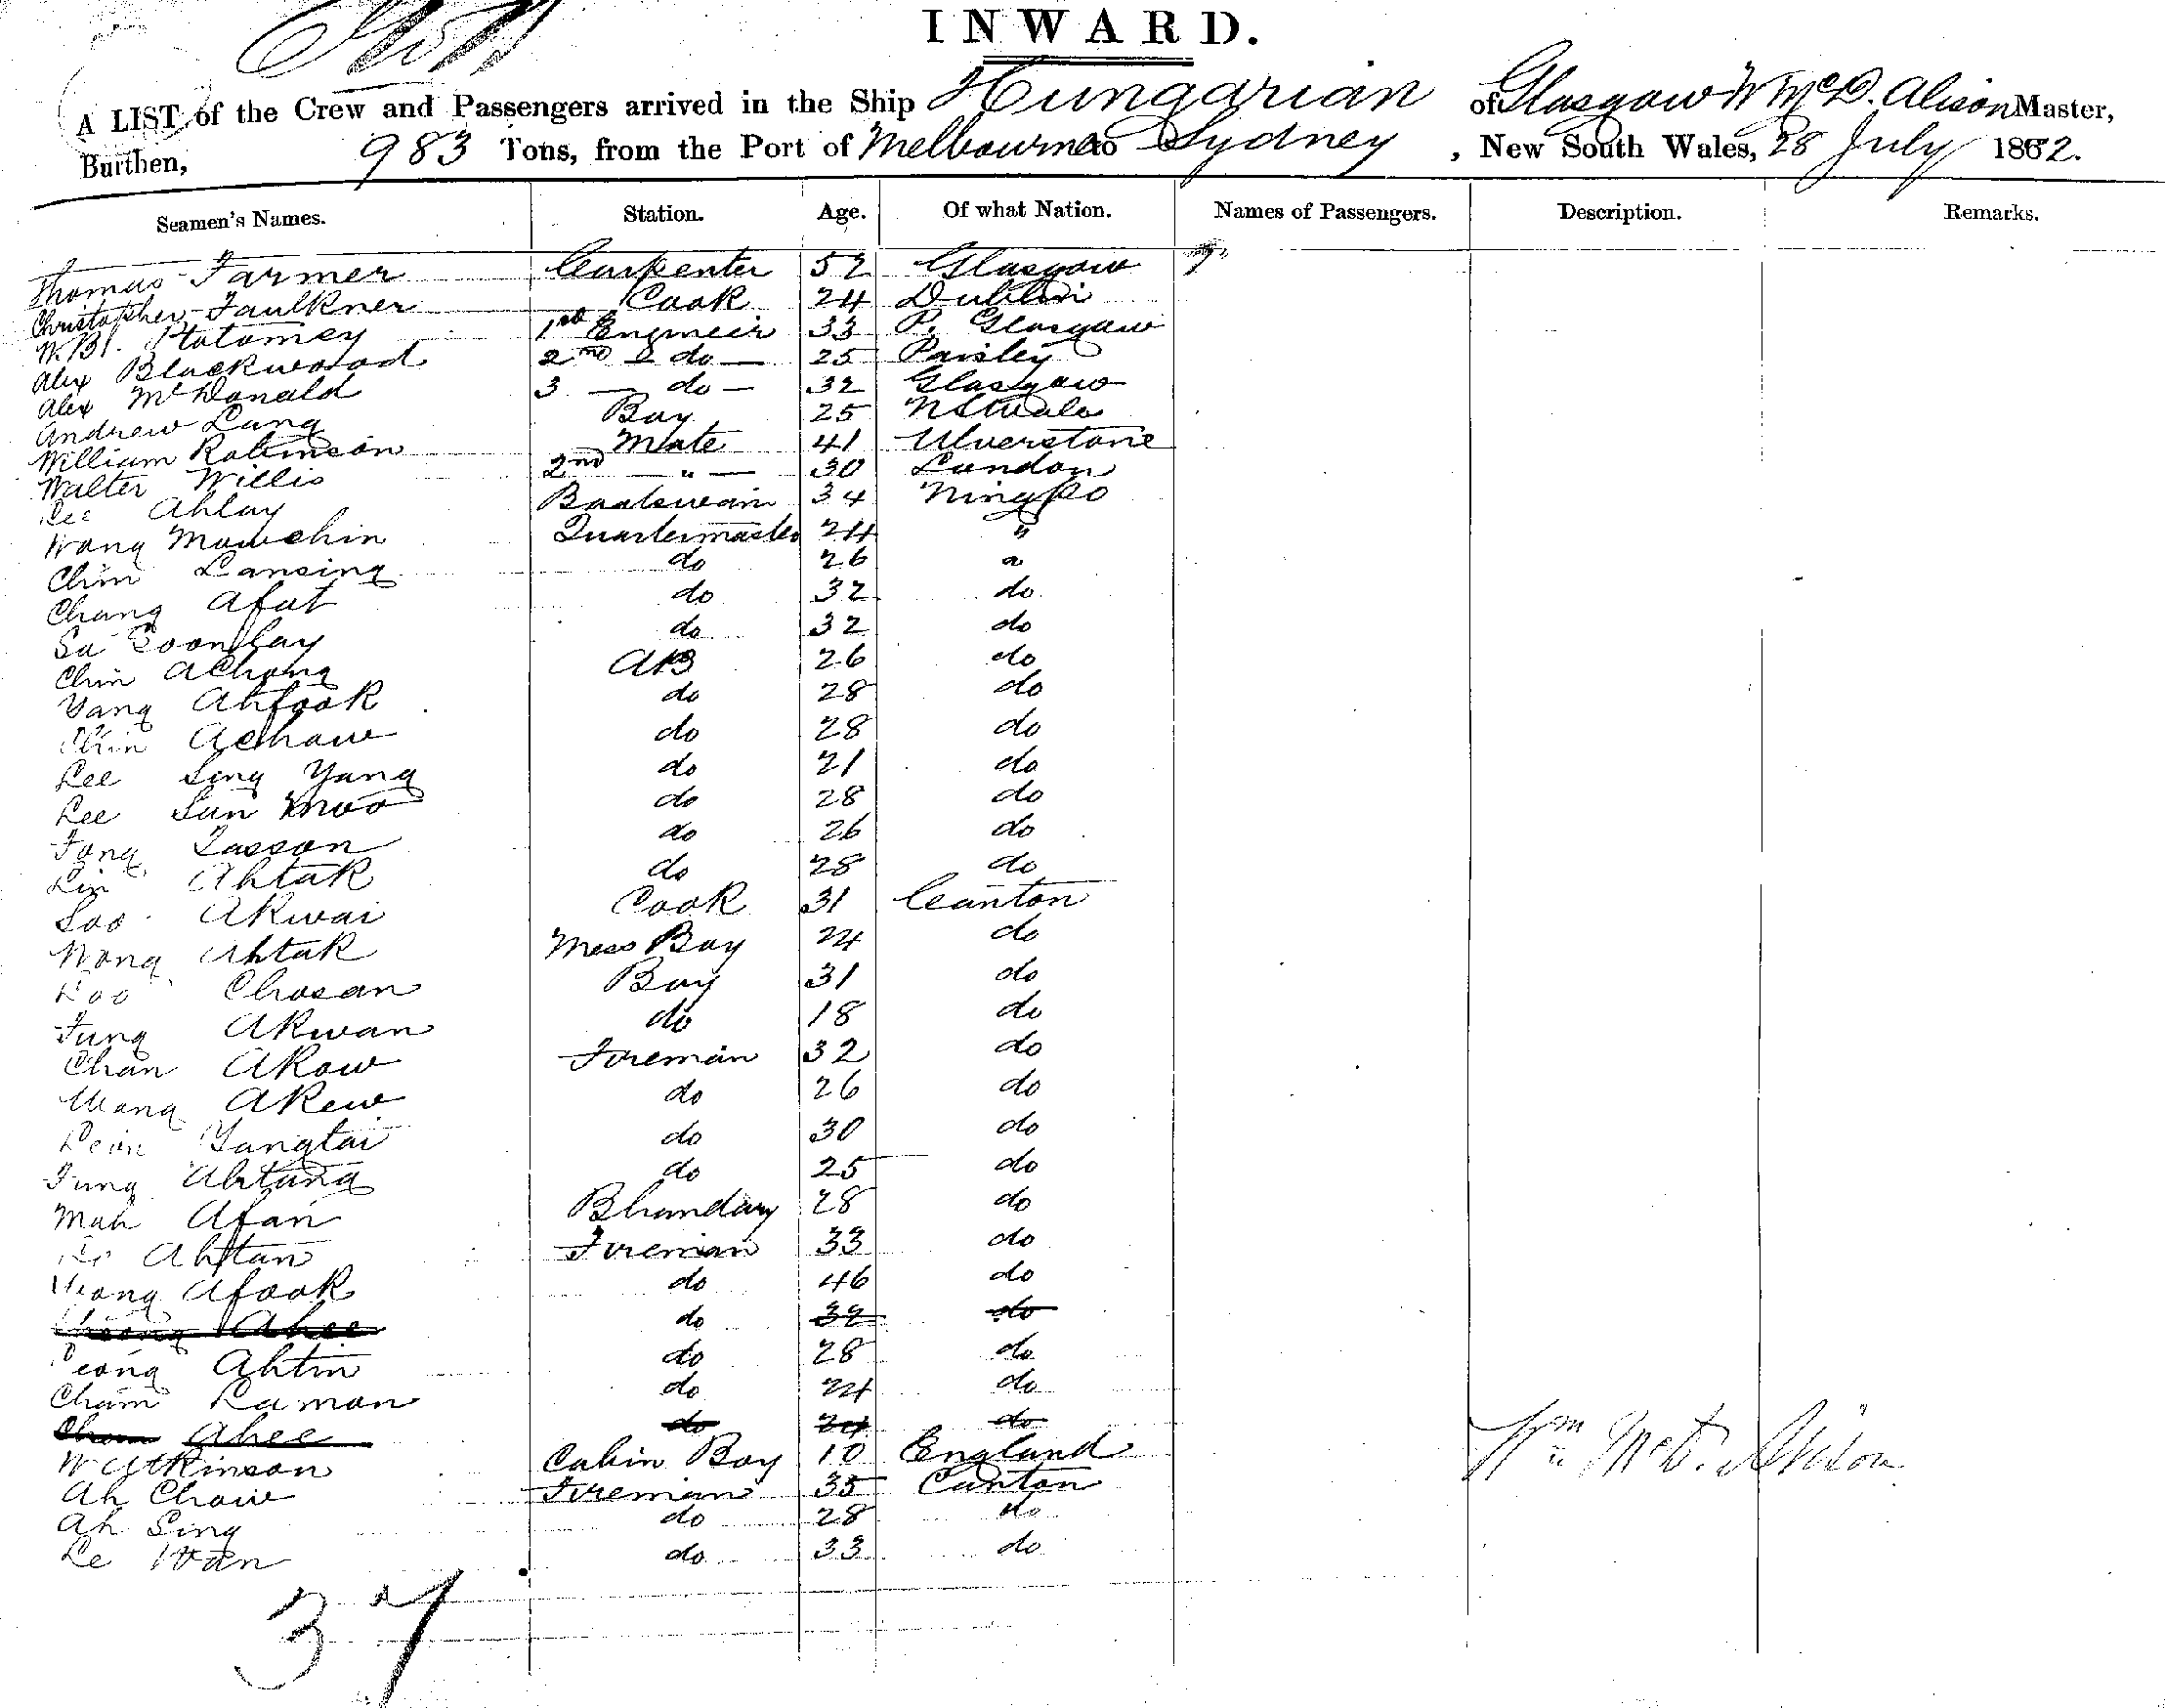 INWARD.
A LIST of the Crew and Passengers arrived in the Ship Hungarian of Glasgow W McD. Alison Master,
Burthen, 983 Tons, from the Port of Melbourne to Sydney, New South Wales, 28 July 1882.
Seamen's Names. Station. Age. Of what Nation. Names of Passengers. Description. Remarks.
Thomas Farmer Carpenter 52 Glasgow
Christopher Faulkner Cook 24 Dublin
1st Engineir 33 P. Glasgow
Alex Blackwood 2nd do 25 Paisley
Alex McDonald 3 do 32 Glasgow
Andrew Lang Boy 25 NSWales
William Robinson Mate 41 Ulverstone
Walter Willis 2nd " 30 London
Lee Ahlay Boatswain 34 Ningpo
Wang Mowchin Quartermaster 24 "
Chin Lansing do 26 "
Chang Afat do 32 do
Su Soonfay do 32 do
Chin AChong AB 26 do
Yang Ahfook do 28 do
Chin Achaw do 28 do
Lee Sing Yang do 21 do
Lee Sun Moo do 28 do
Fong Lasson do 26 do
Lin Ahtak do 28 do
Soo Akwai Cook 31 Canton
Wong Ahtak Mess Boy 24 do
Loo Chosan Boy 31 do
Fung Akwan do 18 do
Chan Akow Fireman 32 do
Akew do 26 do
Yangtai do 30 do
Fung Ahtung do 25 do
Mah Afan Bhandary 28 do
Ahtan Fireman 33 do
Afook do 46 do
Ahee do 32 do
Leong Ahtin do 28 do
Cham Lamon do 24 do
Ahee do 24 do
W Atkinson Cabin Boy 10 England
Ah Chow Fireman 35 Canton
Ah Sing do 28 do
Le Wan do 33 do
Wm McD. Alison
37